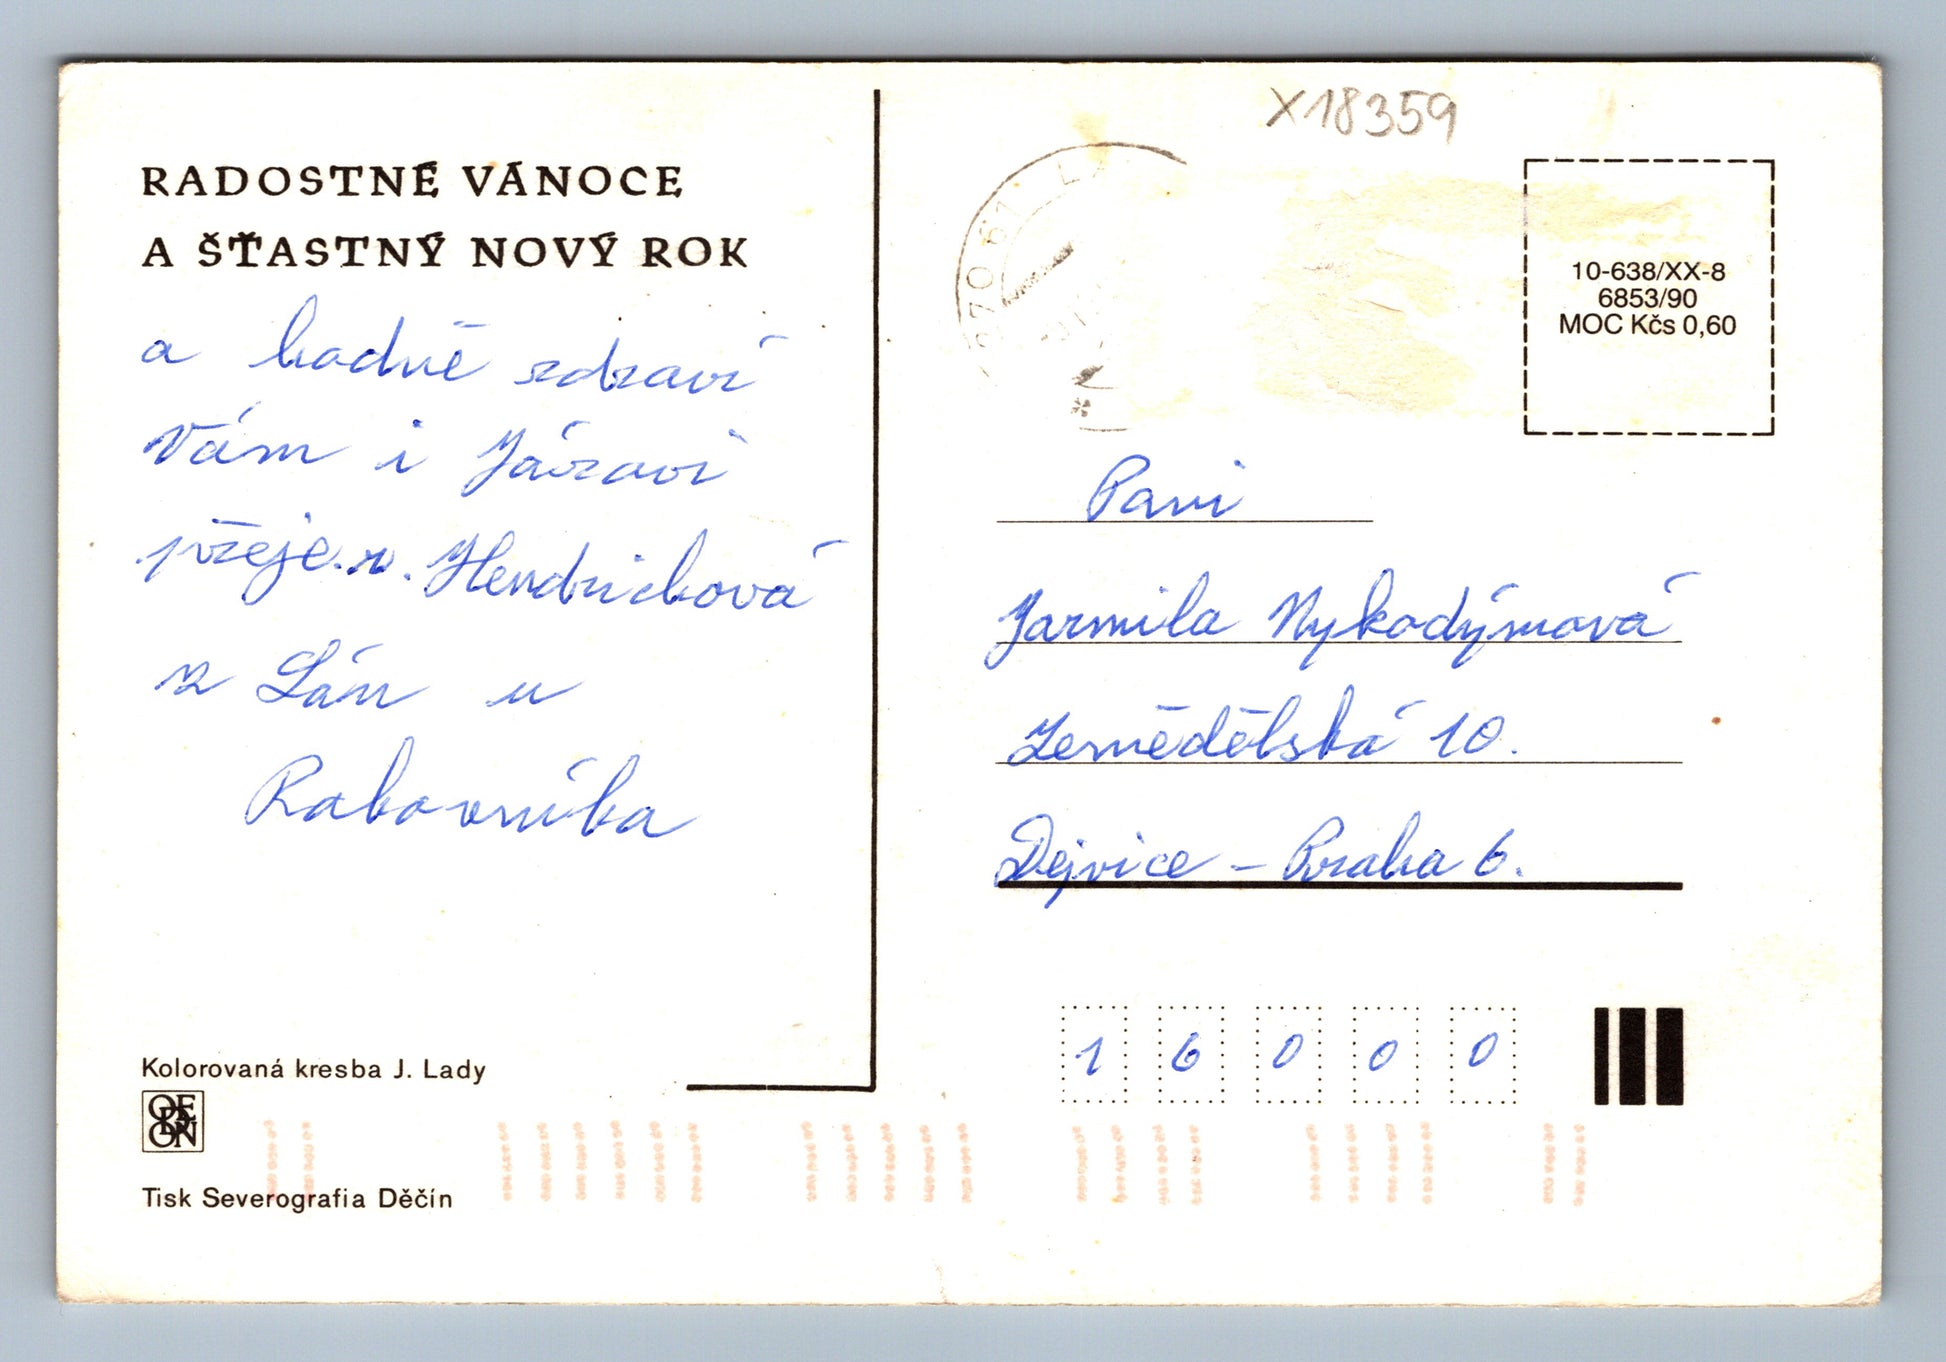 RADOSTNÉ VÁNOCE
A ŠŤASTNÝ NOVÝ ROK
a hodně zdraví
Vám i Járovi
přeje. n. Hendrichová
z Lán u
Rakovníka
Kolorovaná kresba J. Lady
ODEON
Tisk Severografia Děčín
X18359
270 61 LÁ
10-638/XX-8
6853/90
MOC Kčs 0,60
Paní
Jarmila Nykodýmová
Zemědělská 10.
Dejvice – Praha 6.
1 6 0 0 0